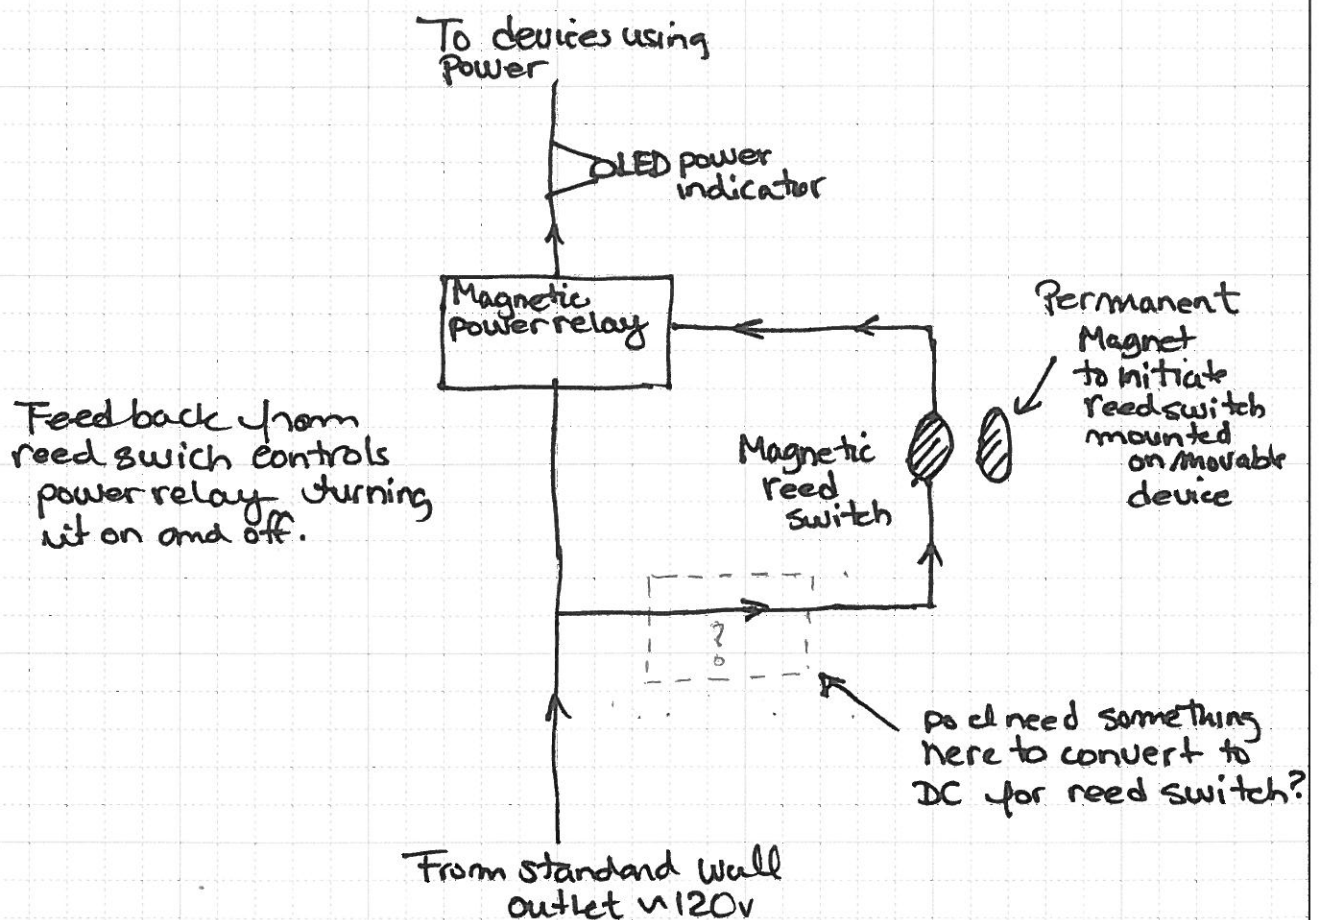 To devices using
Power
LED power
indicator
Magnetic
power relay
Permanent
Magnet
to initiate
reed switch
mounted
on movable
device
Feedback from
reed swich controls
power relay turning
it on and off.
Magnetic
reed
switch
?
Do I need something
here to convert to
DC for reed switch?
From standard wall
outlet ~120v